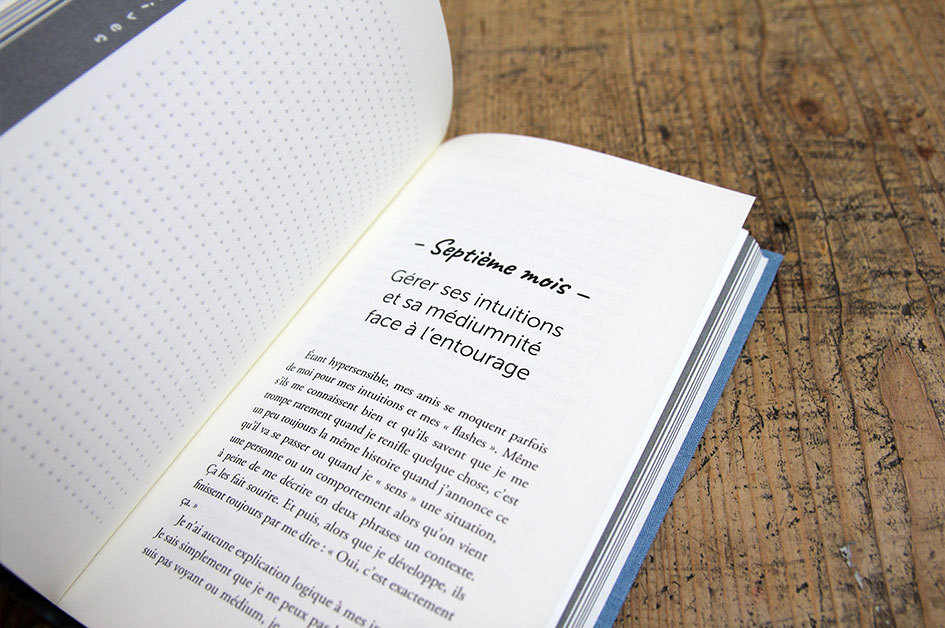 – Septième mois –
Gérer ses intuitions
et sa médiumnité
face à l'entourage
Étant hypersensible, mes amis se moquent parfois
de moi pour mes intuitions et mes « flashes ». Même
s'ils me connaissent bien et qu'ils savent que je me
trompe rarement quand je renifle quelque chose, c'est
un peu toujours la même histoire quand j'annonce ce
qu'il va se passer ou quand je « sens » une situation,
une personne ou un comportement alors qu'on vient
à peine de me décrire en deux phrases un contexte.
Ça les fait sourire. Et puis, alors que je développe, ils
finissent toujours par me dire : « Oui, c'est exactement
ça. »
Je n'ai aucune explication logique à mes
Je sais simplement que je ne peux pas
suis pas voyant ou médium, je